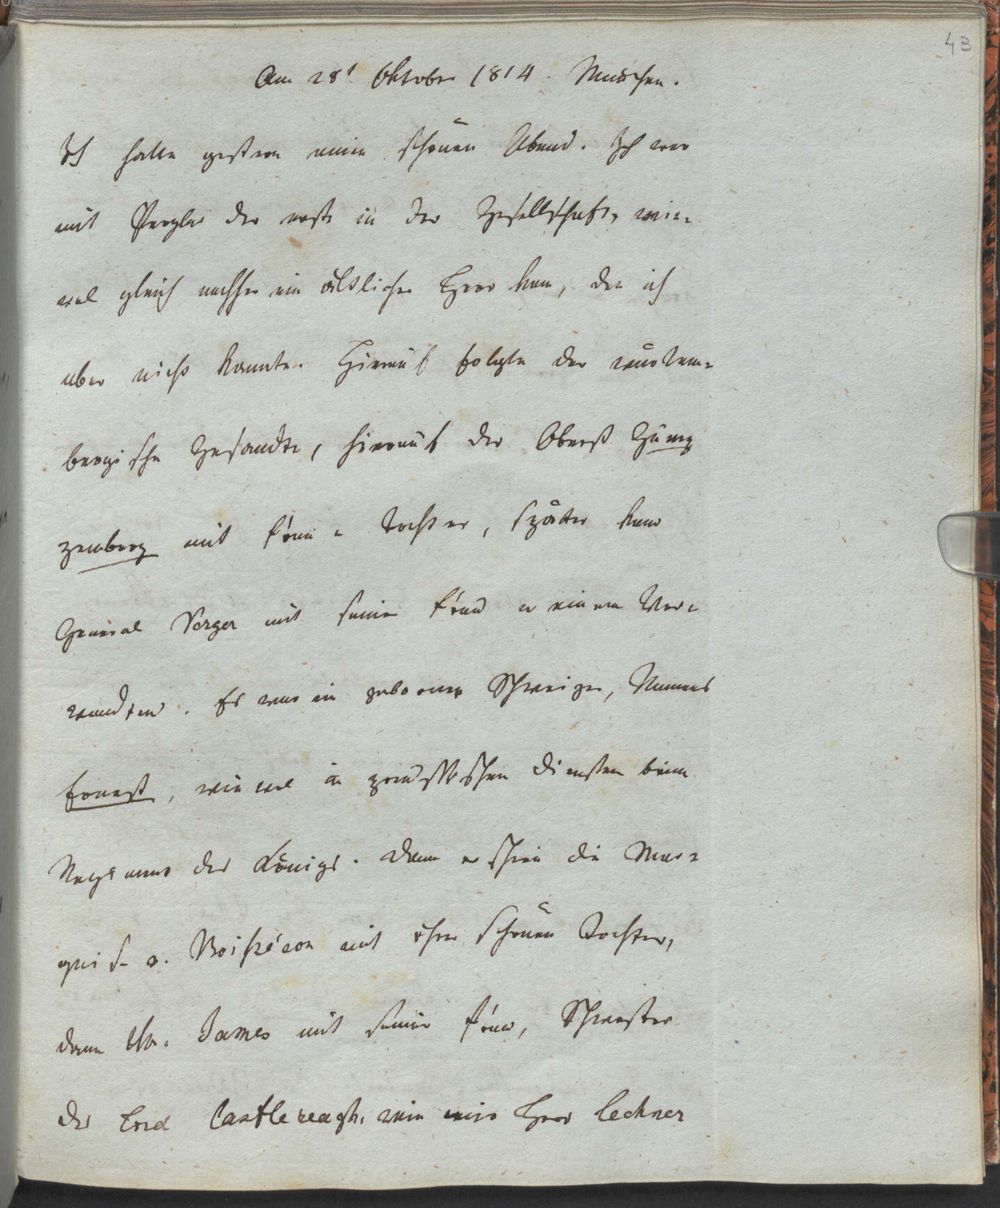 43
Am 28t Oktober 1814. München.
Ich hatte gestern einen schönen Abend. Ich war
mit Perglas der erste in der Gesellschaft, wie-
wol gleich nachher ein ältlicher Herr kam, den ich
aber nicht kannte. Hierauf folgte der würtem-
bergische Gesandte, hierauf der Oberst
mit Frau u Tochter, später kam
General Verger mit seiner Frau u einem Ver-
wandten. Es war ein geborener Schweizer, Namens
Forrest, wiewol in preussischen Diensten beim
Regiment des Königs. Dann erschien die Mar-
quise v. Boisséson mit ihrer schönen Tochter,
dann Mr. James mit seiner Frau, Schwester
des Lord Castlereagh, wie mir Herr Lechner